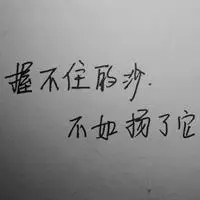 握不住的沙.
不如扬了它